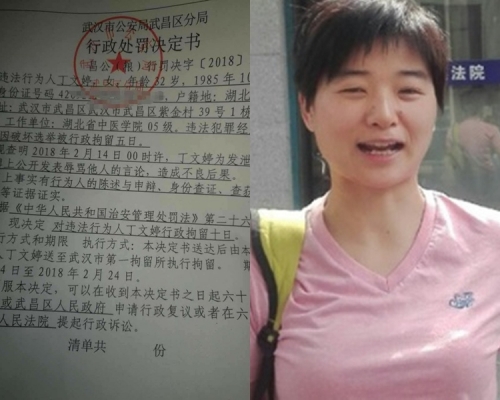 武汉市公安局武昌区分局
行政处罚决定书
行罚决字〔2018〕
违法行为人丁文婷，女，年龄32岁，1985年10
身份证号码420 户籍地：湖北
址：武汉市武昌区武汉市武昌区紫金村39号1栋
工作单位：湖北省中医学院05级。违法犯罪经
因破坏选举被行政拘留五日。
现查明2018年2月14日00时许，丁文婷为发泄
上公开发表辱骂他人的言论，造成不良后果。
上事实有行为人的陈述与申辩，身份查证，查获
等证据证实。
据《中华人民共和国治安管理处罚法》第二十六
现决定 对违法行为人丁文婷行政拘留十日。
行方式和期限 执行方式：本决定书送达后由本
人丁文婷送至武汉市第一拘留所执行拘留。 期
4日至2018年2月24日。
服本决定，可以在收到本决定书之日起六十
或武昌区人民政府 申请行政复议或者在六
人民法院 提起行政诉讼。
清单共 份
法院